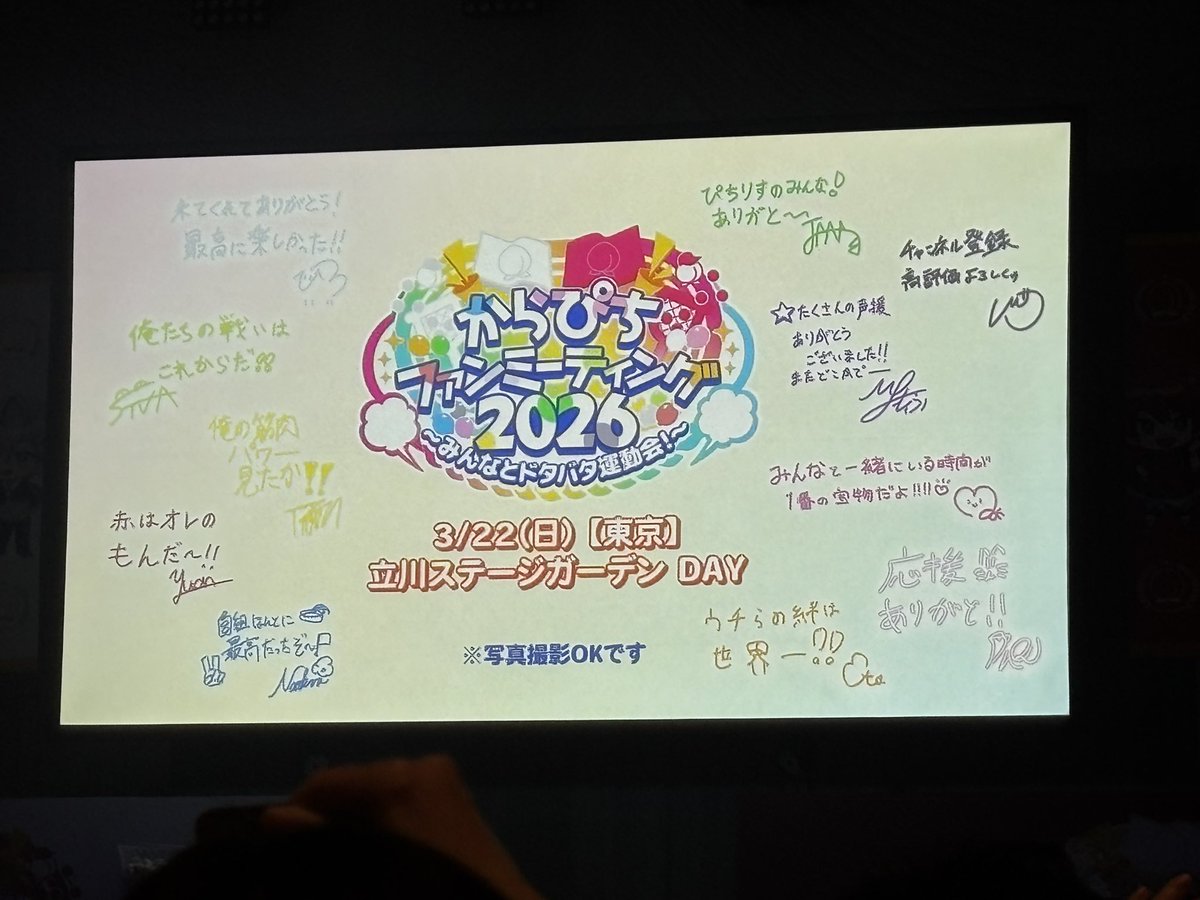 来てくれてありがとう!
最高に楽しかった!!
俺たちの戦いは
これからだ!!
俺の筋肉
パワー
見たか!!
赤はオレの
もんだ〜!!
最高だったぞ〜!
からぴち
ファンミーティング
2026
〜みんなとドタバタ運動会!〜
3/22(日)【東京】
立川ステージガーデン DAY
※写真撮影OKです
ぴちりすのみんな!
ありがと〜
チャンネル登録
高評価よろしく
☆たくさんの声援
ありがとう
ございました!!
またどこかで ー
みんなと一緒にいる時間が
1番の宝物だよ!!!!
応援
ありがと!!
ウチらの絆は
世界一!!